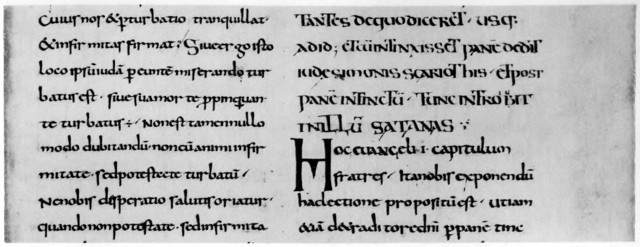 Cuius nos & p̄turbatio tranquillat·
& infirmitas firmat; Siue ergo isto
loco ipsū iudā p̄euntē miserando tur
batus est· siue sua morte p̄pinquan
te turbatus ÷· Non est tamen nullo
modo dubitandū· non eum animi infir
mitate· sed potestate turbatū /
Ne nobis desperatio salutis oriatur·
quando non potestate· sed infirmita
TANTES DE QUO DICERET· USQ·
AD ID; ET CŪ INTINXISSET PANĒ DEDIT
IUDE SIMONIS SCARIOTHIS· ET POST
PANĒ INTINCTŪ· TUNC INTROIBIT
IN ILLŪ SATANAS
Hoc euangelii capitulum
fratres· & a nobis exponendū
hac lectione propositū est· ut iam
p̄ panē tinc